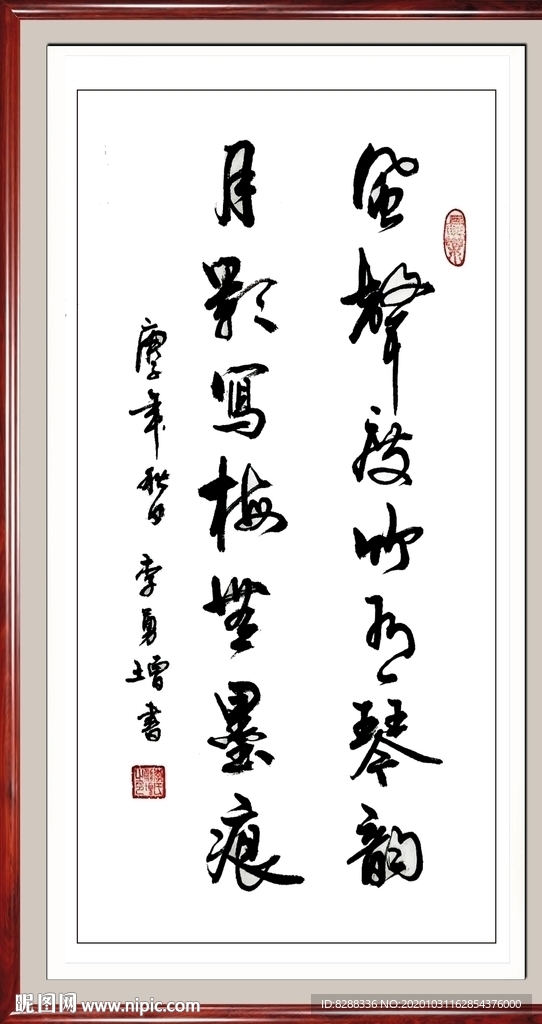 風聲度竹有琴韵
月影寫梅無墨痕
庚子年秋日 李勇增書
昵图网 www.nipic.com
ID:8288336 NO:20201031162854376000